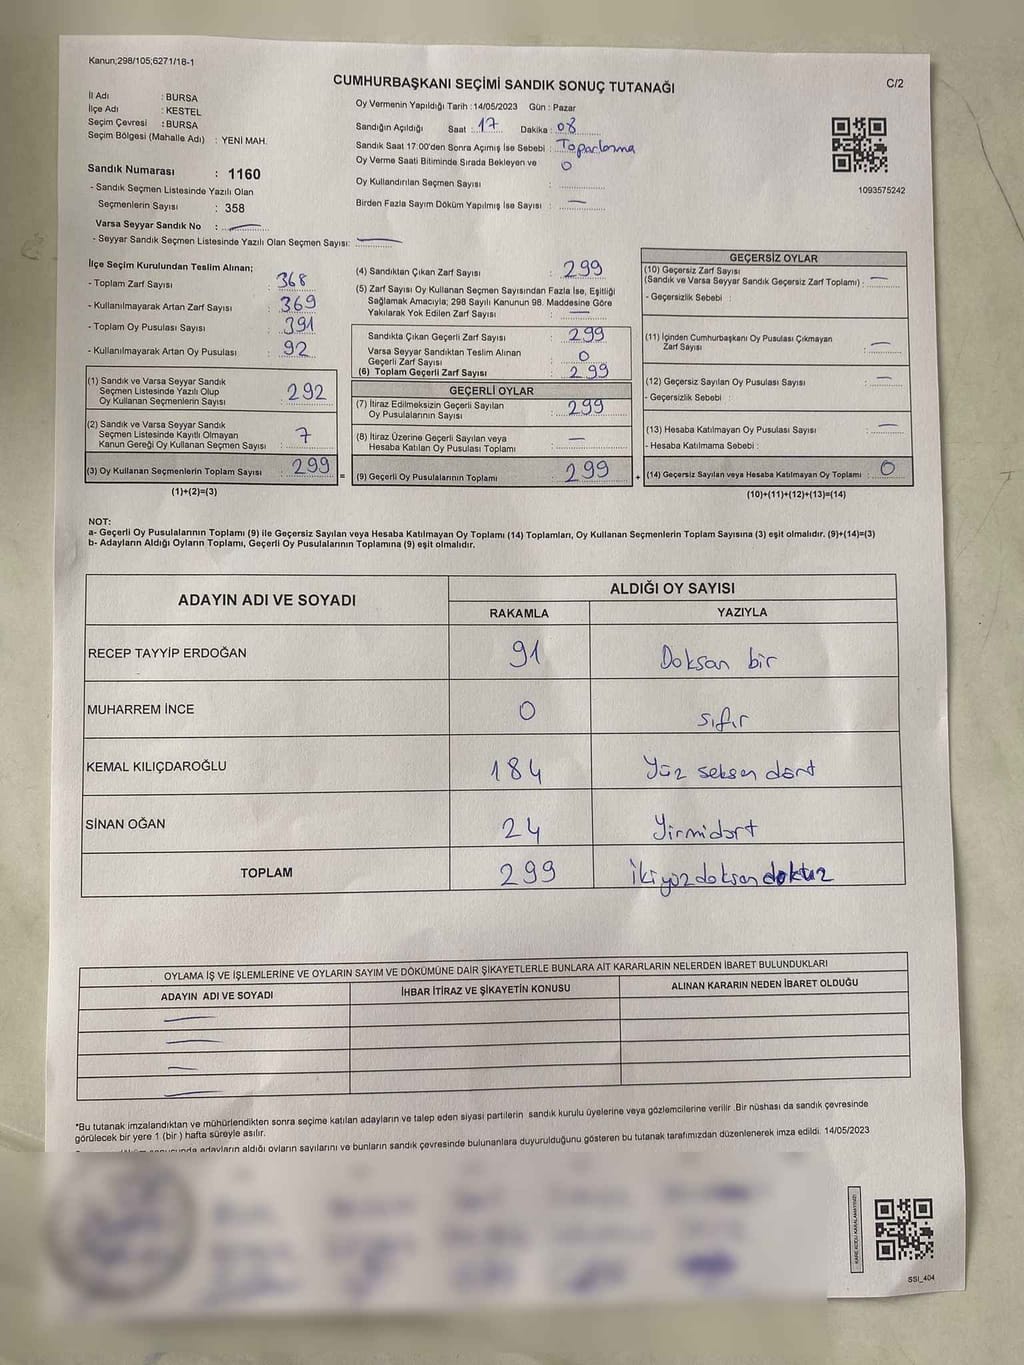 Kanun;298/105;6271/18-1
CUMHURBAŞKANI SEÇİMİ SANDIK SONUÇ TUTANAĞI
C/2
İl Adı : BURSA
İlçe Adı : KESTEL
Seçim Çevresi : BURSA
Seçim Bölgesi (Mahalle Adı) : YENİ MAH.
Sandık Numarası : 1160
- Sandık Seçmen Listesinde Yazılı Olan
Seçmenlerin Sayısı : 358
Varsa Seyyar Sandık No :
- Seyyar Sandık Seçmen Listesinde Yazılı Olan Seçmen Sayısı:
Oy Vermenin Yapıldığı Tarih : 14/05/2023 Gün : Pazar
Sandığın Açıldığı Saat : 17 Dakika : 08
Sandık Saat 17:00'den Sonra Açımış İse Sebebi : Toparlanma
Oy Verme Saati Bitiminde Sırada Bekleyen ve 0
Oy Kullandırılan Seçmen Sayısı :
Birden Fazla Sayım Döküm Yapılmış İse Sayısı : —
1093575242
İlçe Seçim Kurulundan Teslim Alınan;
- Toplam Zarf Sayısı : 368
- Kullanılmayarak Artan Zarf Sayısı : 369
- Toplam Oy Pusulası Sayısı : 391
- Kullanılmayarak Artan Oy Pusulası : 92
(1) Sandık ve Varsa Seyyar Sandık
Seçmen Listesinde Yazılı Olup
Oy Kullanan Seçmenlerin Sayısı : 292
(2) Sandık ve Varsa Seyyar Sandık
Seçmen Listesinde Kayıtlı Olmayan
Kanun Gereği Oy Kullanan Seçmen Sayısı : 7
(3) Oy Kullanan Seçmenlerin Toplam Sayısı : 299 =
(1)+(2)=(3)
(4) Sandıktan Çıkan Zarf Sayısı : 299
(5) Zarf Sayısı Oy Kullanan Seçmen Sayısından Fazla İse, Eşitliği
Sağlamak Amacıyla; 298 Sayılı Kanunun 98. Maddesine Göre
Yakılarak Yok Edilen Zarf Sayısı : —
Sandıkta Çıkan Geçerli Zarf Sayısı : 299
Varsa Seyyar Sandıktan Teslim Alınan
Geçerli Zarf Sayısı : 0
(6) Toplam Geçerli Zarf Sayısı : 299
GEÇERLİ OYLAR
(7) İtiraz Edilmeksizin Geçerli Sayılan
Oy Pusulalarının Sayısı : 299
(8) İtiraz Üzerine Geçerli Sayılan veya
Hesaba Katılan Oy Pusulası Toplamı : —
(9) Geçerli Oy Pusulalarının Toplamı : 299 +
GEÇERSİZ OYLAR
(10) Geçersiz Zarf Sayısı
(Sandık ve Varsa Seyyar Sandık Geçersiz Zarf Toplamı) : —
- Geçersizlik Sebebi :
(11) İçinden Cumhurbaşkanı Oy Pusulası Çıkmayan
Zarf Sayısı : —
(12) Geçersiz Sayılan Oy Pusulası Sayısı : —
- Geçersizlik Sebebi :
(13) Hesaba Katılmayan Oy Pusulası Sayısı : —
- Hesaba Katılmama Sebebi :
(14) Geçersiz Sayılan veya Hesaba Katılmayan Oy Toplamı : 0
(10)+(11)+(12)+(13)=(14)
NOT:
a- Geçerli Oy Pusulalarının Toplamı (9) ile Geçersiz Sayılan veya Hesaba Katılmayan Oy Toplamı (14) Toplamları, Oy Kullanan Seçmenlerin Toplam Sayısına (3) eşit olmalıdır. (9)+(14)=(3)
b- Adayların Aldığı Oyların Toplamı, Geçerli Oy Pusulalarının Toplamına (9) eşit olmalıdır.
ADAYIN ADI VE SOYADI
ALDIĞI OY SAYISI
RAKAMLA YAZIYLA
RECEP TAYYİP ERDOĞAN 91 Doksan bir
MUHARREM İNCE 0 sıfır
KEMAL KILIÇDAROĞLU 184 Yüz seksen dört
SİNAN OĞAN 24 Yirmidört
TOPLAM 299 ikiyüzdoksandokuz
OYLAMA İŞ VE İŞLEMLERİNE VE OYLARIN SAYIM VE DÖKÜMÜNE DAİR ŞİKAYETLERLE BUNLARA AİT KARARLARIN NELERDEN İBARET BULUNDUKLARI
ADAYIN ADI VE SOYADI İHBAR İTİRAZ VE ŞİKAYETİN KONUSU ALINAN KARARIN NEDEN İBARET OLDUĞU
*Bu tutanak imzalandıktan ve mühürlendikten sonra seçime katılan adayların ve talep eden siyasi partilerin sandık kurulu üyelerine veya gözlemcilerine verilir .Bir nüshası da sandık çevresinde
görülecek bir yere 1 (bir ) hafta süreyle asılır.
adayların aldığı oyların sayılarını ve bunların sandık çevresinde bulunanlara duyurulduğunu gösteren bu tutanak tarafımızdan düzenlenerek imza edildi. 14/05/2023
SSI_404